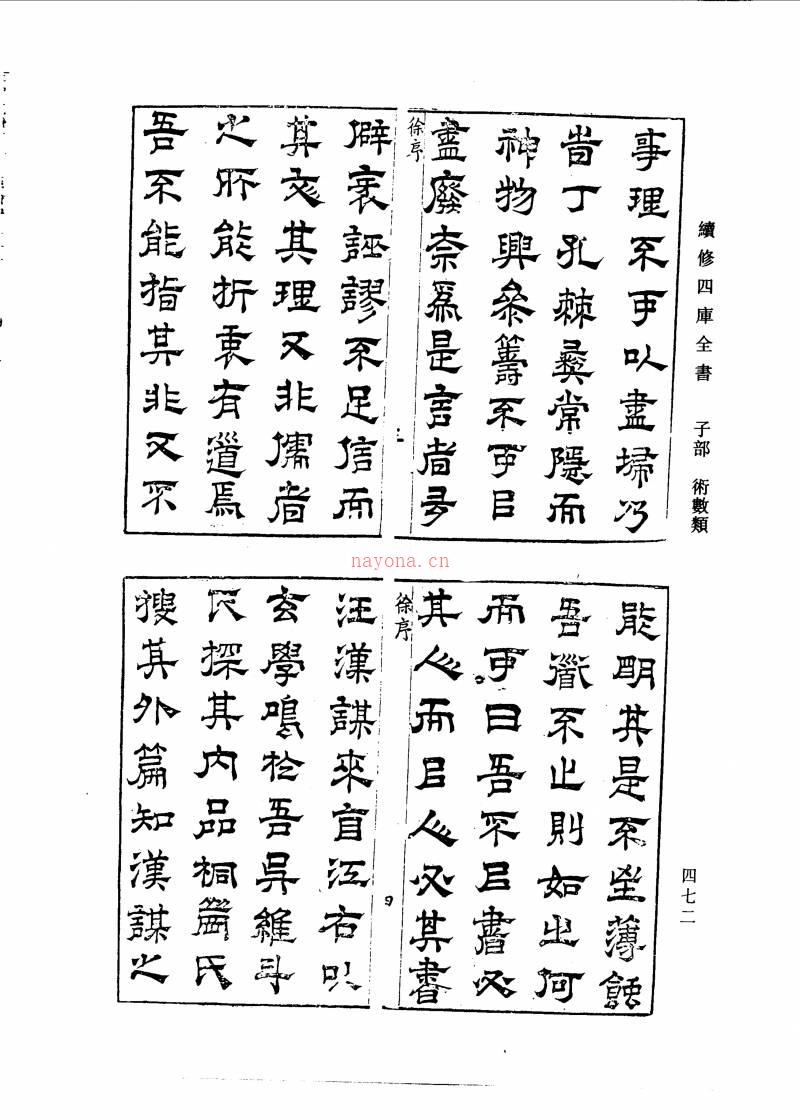 續修四庫全書 子部 術數類
四七二
事理不可以盡埽乃
昔丁孔棘彝常隱而
神物興枭籌不可㠯
盡廢柰爲是言者多
徐序
三
僻裹誣謬不足信而
其文其理又非儒者
之所能折衷有道焉
吾不能指其非又不
能明其是不坐薄蝕
吾衟不止則如之何
而可曰吾不㠯書必
其人而㠯人必其書
徐序
四
汪漢謀來自江右以
玄學鳴於吾吳維斗
氏探其內品桐菑氏
搜其外篇知漢謀之
nayona.cn